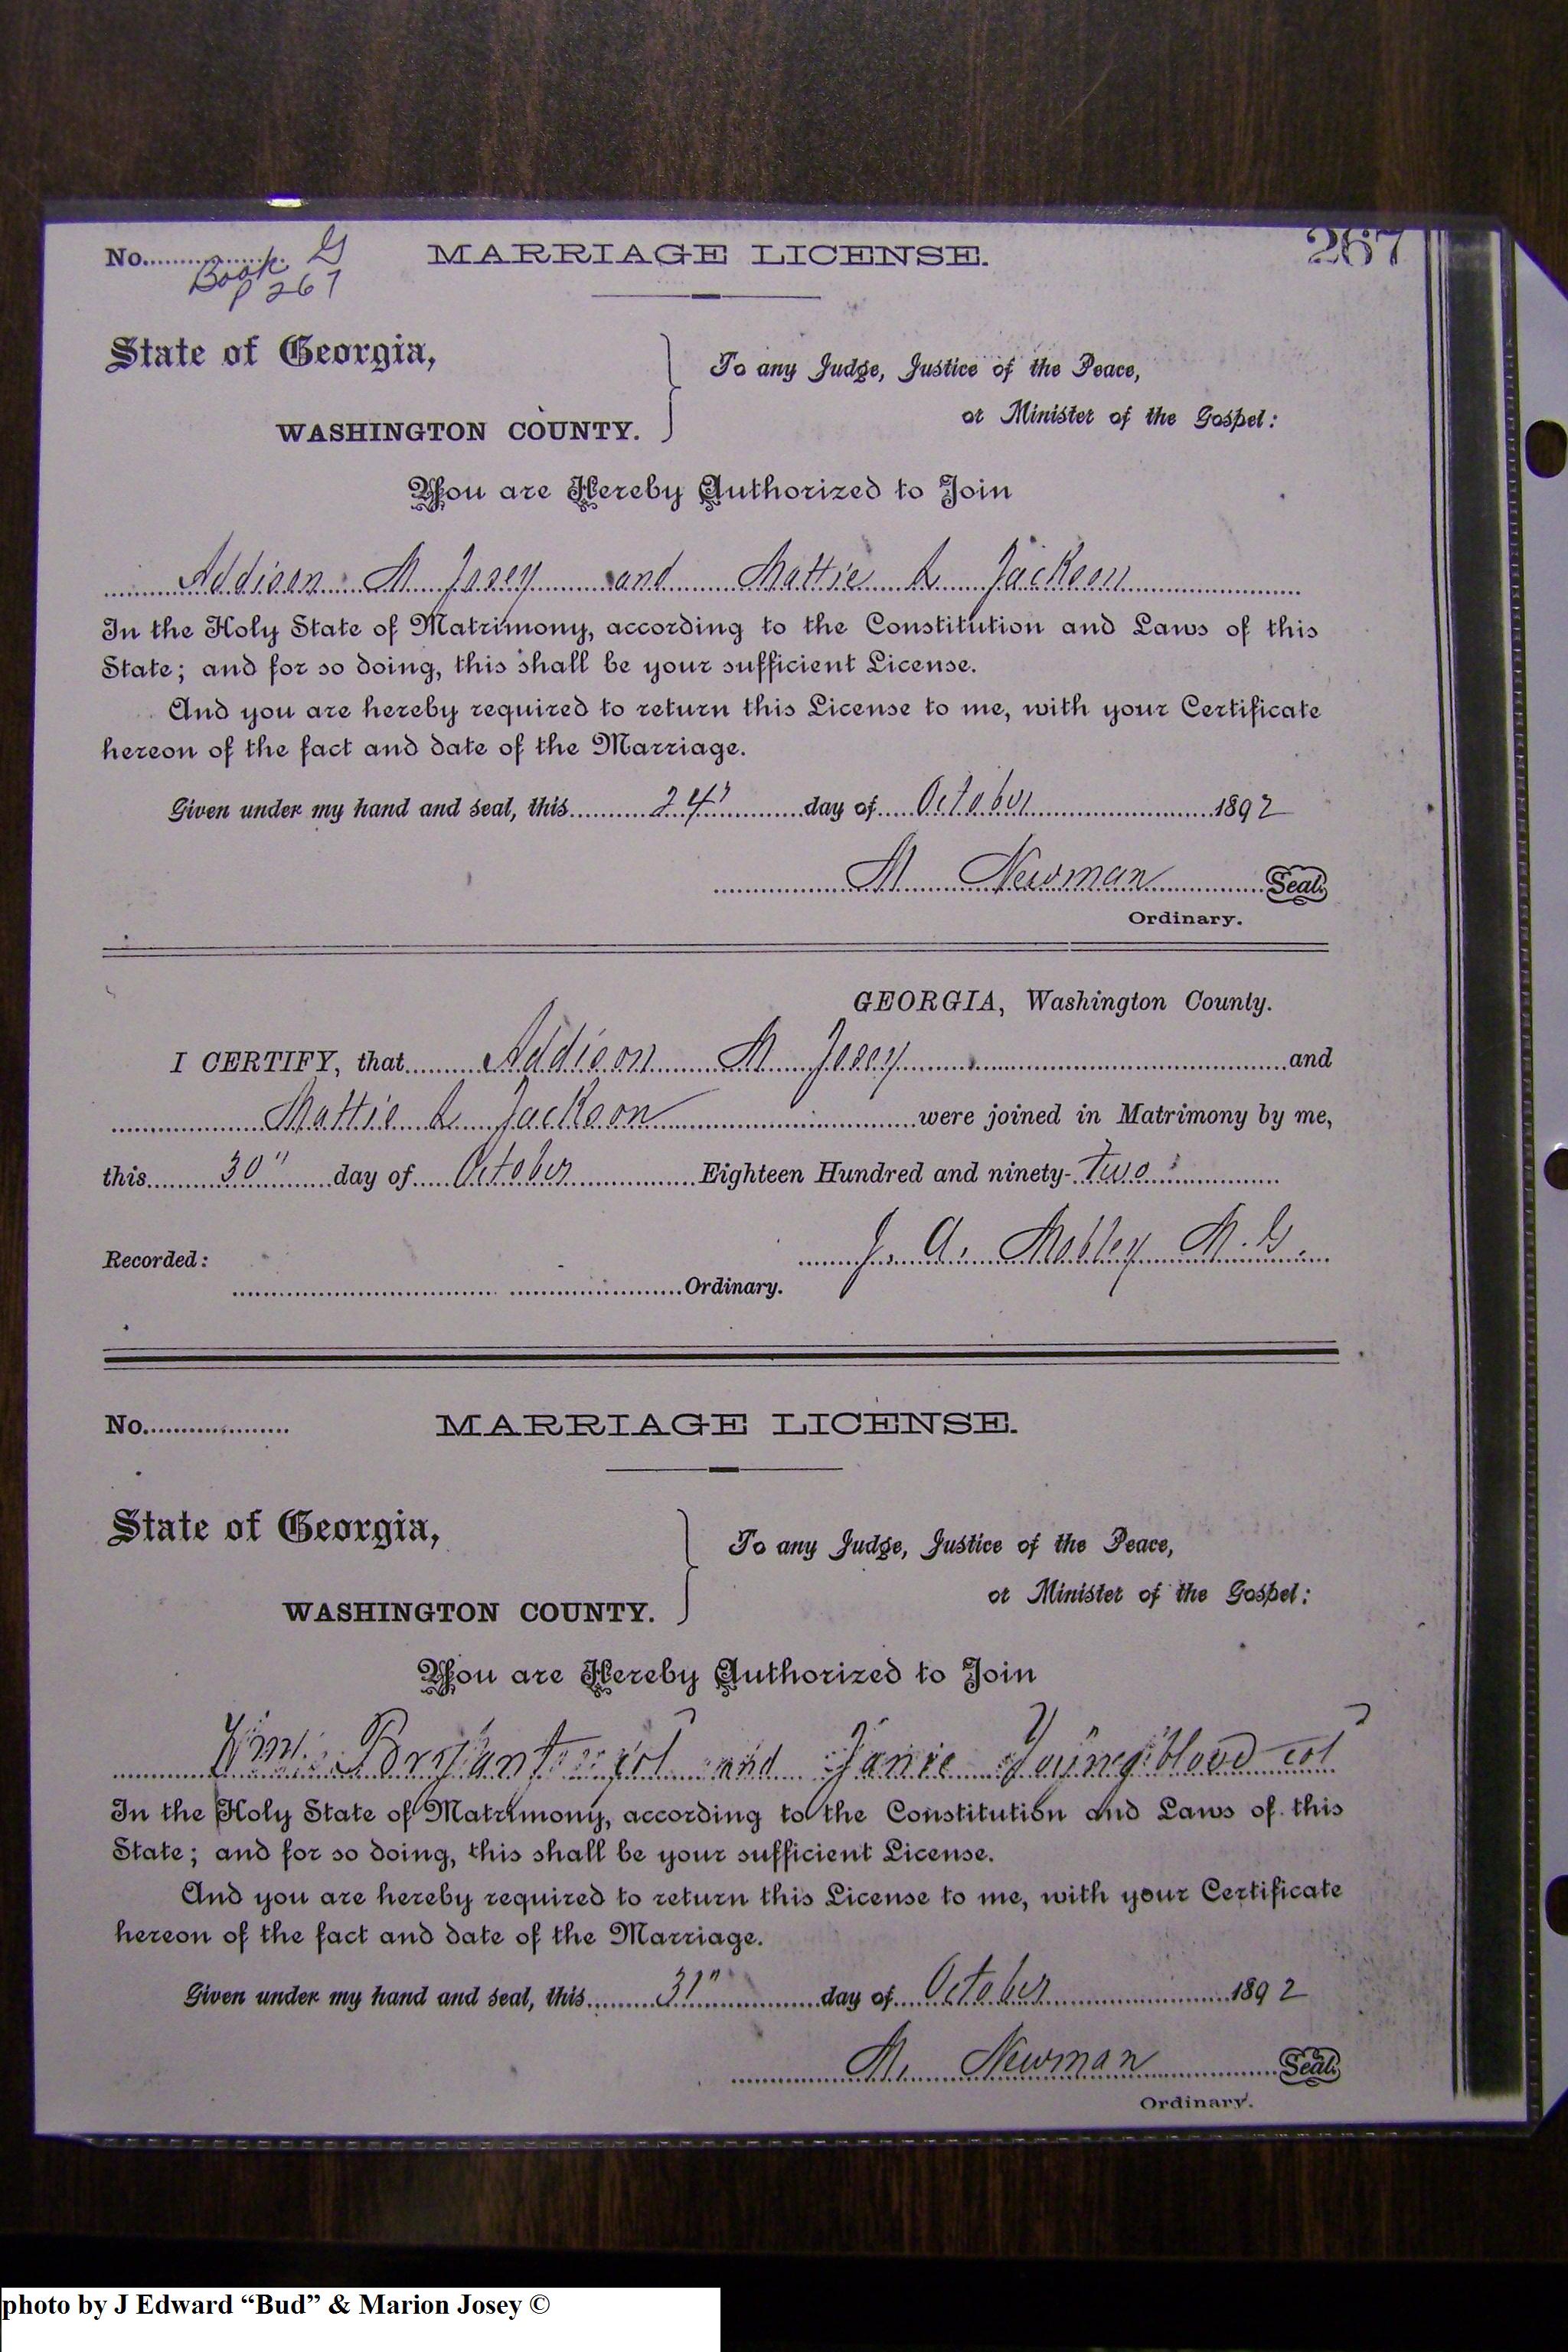 No.................... G MARRIAGE LICENSE. 267
Book
P 267
State of Georgia,
To any Judge, Justice of the Peace,
or Minister of the Gospel:
WASHINGTON COUNTY.
You are Hereby Authorized to Join
Addison M Josey and Mattie L Jackson
In the Holy State of Matrimony, according to the Constitution and Laws of this
State; and for so doing, this shall be your sufficient License.
And you are hereby required to return this License to me, with your Certificate
hereon of the fact and date of the Marriage.
Given under my hand and seal, this 24" day of October 1892
M Newman Seal.
Ordinary.
GEORGIA, Washington County.
I CERTIFY, that Addison M Josey and
Mattie L Jackson were joined in Matrimony by me,
this 30" day of October Eighteen Hundred and ninety-Two
J. A. Mobley M.G.
Recorded:
Ordinary.
No.................... MARRIAGE LICENSE.
State of Georgia,
To any Judge, Justice of the Peace,
or Minister of the Gospel:
WASHINGTON COUNTY.
You are Hereby Authorized to Join
Wm. Bryant col and Janie Youngblood col
In the Holy State of Matrimony, according to the Constitution and Laws of this
State; and for so doing, this shall be your sufficient License.
And you are hereby required to return this License to me, with your Certificate
hereon of the fact and date of the Marriage.
Given under my hand and seal, this 31" day of October 1892
M. Newman Seal.
Ordinary.
photo by J Edward “Bud” & Marion Josey ©